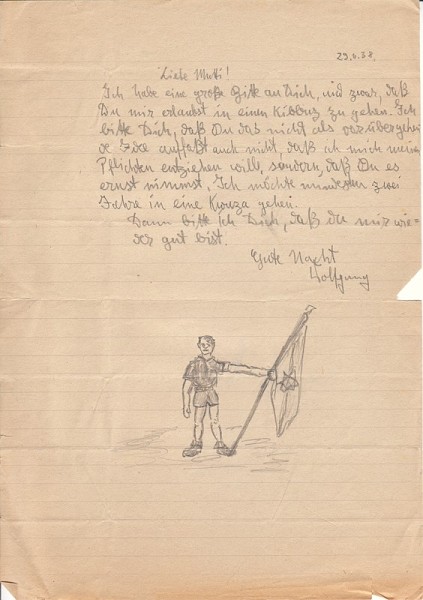 29.V.38.
Liebe Mutti!
Ich habe eine große Bitte an Dich, und zwar, daß
Du mir erlaubst in einen Kibbuz zu gehen. Ich
bitte Dich, daß Du das nicht als vorübergehen
de Idee auffaßt auch nicht, daß ich mich meinen
Pflichten entziehen will, sondern, daß Du es
ernst nimmst. Ich möchte mindestens zwei
Jahre in eine Kwuza gehen.
Dann bitte ich Dich, daß du mir wie=
der gut bist.
Gute Nacht
Wolfgang